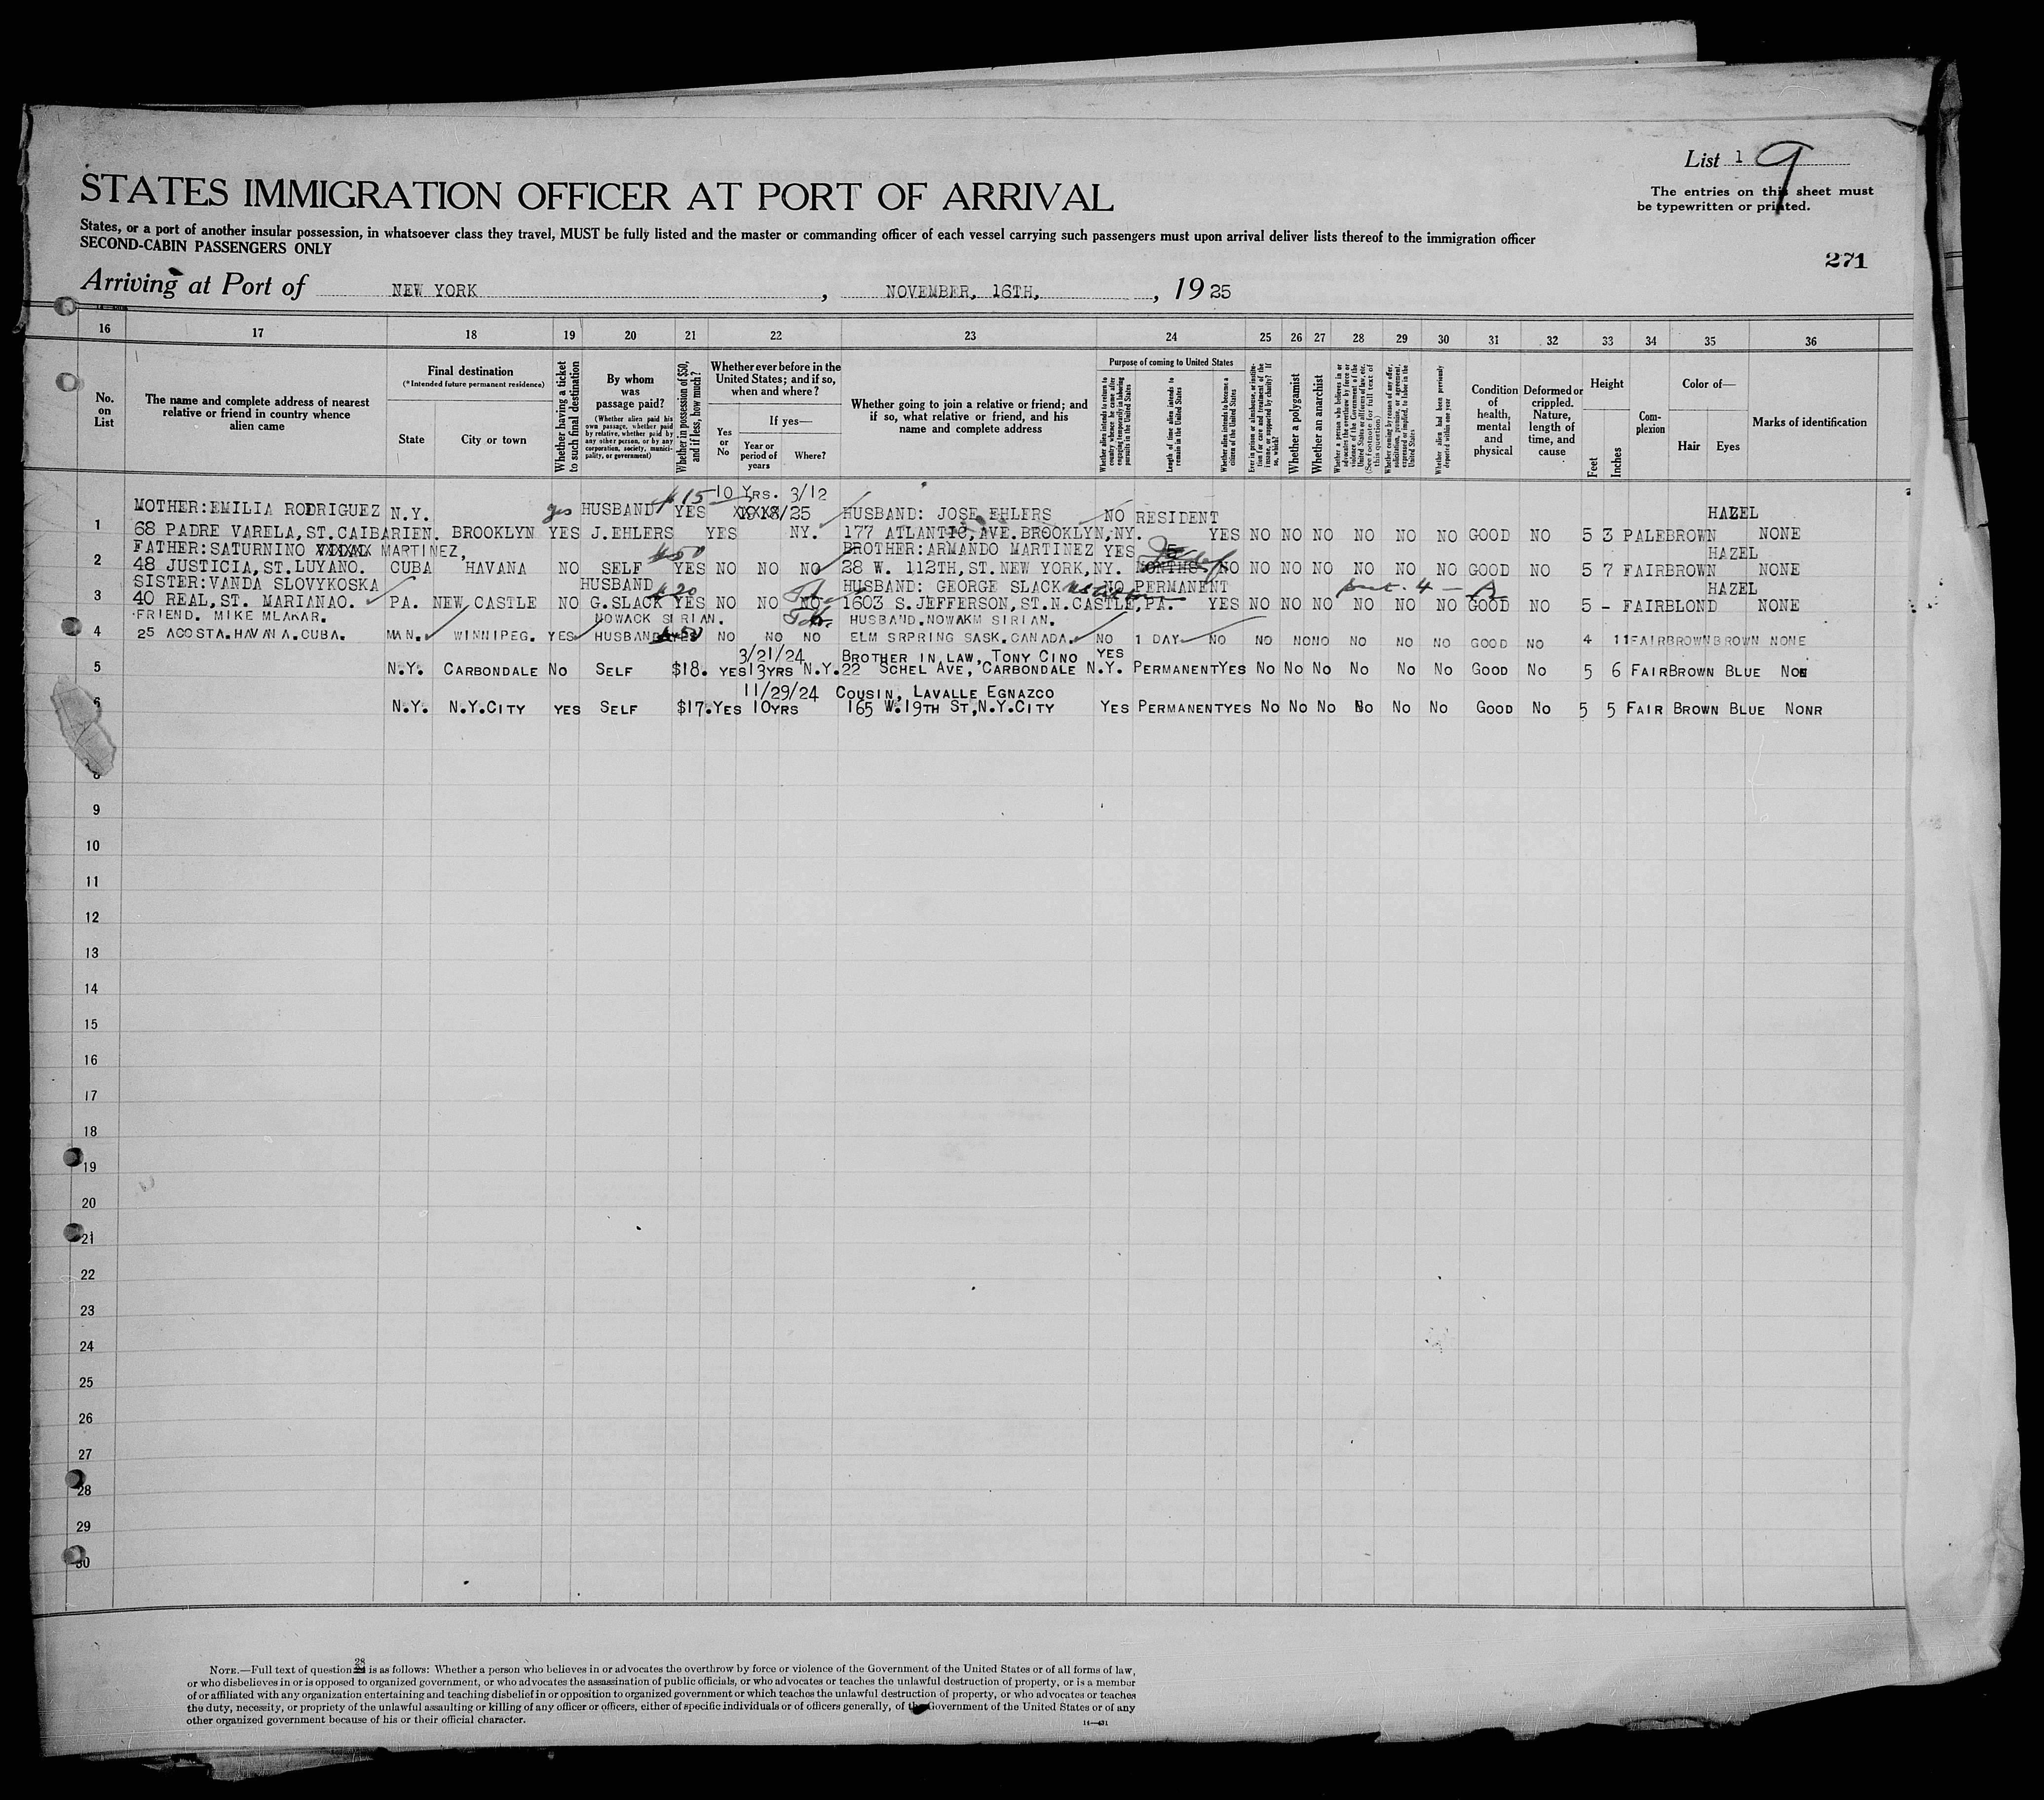 List 1 9
STATES IMMIGRATION OFFICER AT PORT OF ARRIVAL
The entries on this sheet must
be typewritten or printed.
States, or a port of another insular possession, in whatsoever class they travel, MUST be fully listed and the master or commanding officer of each vessel carrying such passengers must upon arrival deliver lists thereof to the immigration officer
SECOND-CABIN PASSENGERS ONLY
271
Arriving at Port of NEW YORK, NOVEMBER, 16TH, , 1925
16 17 18 19 20 21 22 23 24 25 26 27 28 29 30 31 32 33 34 35 36
No. on List
The name and complete address of nearest relative or friend in country whence alien came
Final destination
(*Intended future permanent residence)
State
City or town
Whether having a ticket to such final destination
By whom was passage paid?
(Whether alien paid his own passage, whether paid by relative, whether paid by any other person, or by any corporation, society, municipality, or government)
Whether in possession of $50, and if less, how much?
Whether ever before in the United States; and if so, when and where?
Yes or No
If yes—
Year or period of years
Where?
Whether going to join a relative or friend; and if so, what relative or friend, and his name and complete address
Purpose of coming to United States
Whether alien intends to return to country whence he came after engaging temporarily in laboring pursuits in the United States
Length of time alien intends to remain in the United States
Whether alien intends to become a citizen of the United States
Ever in prison or almshouse, or institution for care and treatment of the insane, or supported by charity? If so, which?
Whether a polygamist
Whether an anarchist
Whether a person who believes in or advocates the overthrow by force or violence of the Government of the United States or all forms of law, etc. (See footnote for full text of this question)
Whether coming by reason of any offer, solicitation, promise, or agreement, expressed or implied, to labor in the United States
Whether alien had been previously deported within one year
Condition of health, mental and physical
Deformed or crippled. Nature, length of time, and cause
Height
Feet
Inches
Complexion
Color of—
Hair
Eyes
Marks of identification
10 YRS. 3/12
MOTHER:EMILIA RODRIGUEZ N.Y. yes HUSBAND $15 YES HUSBAND: JOSE EHLERS NO RESIDENT HAZEL
1 68 PADRE VARELA,ST.CAIBARIEN. BROOKLYN YES J.EHLERS YES /25 NY. 177 ATLANTIC,AVE.BROOKLYN,NY. YES NO NO NO NO NO NO GOOD NO 5 3 PALE BROWN NONE
FATHER:SATURNINO MARTINEZ, $50 BROTHER:ARMANDO MARTINEZ YES HAZEL
2 48 JUSTICIA,ST.LUYANO. CUBA HAVANA NO SELF YES NO NO NO 28 W. 112TH,ST.NEW YORK,NY. MONTHS NO NO NO NO NO NO NO GOOD NO 5 7 FAIR BROWN NONE
SISTER:VANDA SLOVYKOSKA HUSBAND $20 HUSBAND: GEORGE SLACK NO PERMANENT HAZEL
3 40 REAL,ST. MARIANAO. PA. NEW CASTLE NO G.SLACK YES NO NO NO 1603 S.JEFFERSON,ST.N.CASTLE,PA. YES NO NO NO NO NO NO GOOD NO 5 - FAIR BLOND NONE
FRIEND. MIKE MLAKAR. NOWACK SIRIAN. HUSBAND.NOWAKM SIRIAN.
4 25 ACOSTA.HAVANA.CUBA. MAN. WINNIPEG. YES HUSBAND YES NO NO NO ELM SRPRING SASK.CANADA. NO 1 DAY NO NO NO NO NO NO NO GOOD NO 4 11 FAIR BROWN BROWN NONE
3/21/24 BROTHER IN LAW, TONY CINO YES
5 N.Y. CARBONDALE NO SELF $18. YES 13YRS N.Y. 22 SCHEL AVE, CARBONDALE N.Y. PERMANENT YES NO NO NO NO NO NO GOOD NO 5 6 FAIR BROWN BLUE NOE
11/29/24 COUSIN, LAVALLE EGNAZCO
6 N.Y. N.Y.CITY YES SELF $17. YES 10YRS 165 W.19TH ST,N.Y.CITY YES PERMANENT YES NO NO NO NO NO NO GOOD NO 5 5 FAIR BROWN BLUE NONR
8
9
10
11
12
13
14
15
16
17
18
19
20
21
22
23
24
25
26
27
28
29
30
28
NOTE.—Full text of question is as follows: Whether a person who believes in or advocates the overthrow by force or violence of the Government of the United States or of all forms of law,
or who disbelieves in or is opposed to organized government, or who advocates the assassination of public officials, or who advocates or teaches the unlawful destruction of property, or is a member
of or affiliated with any organization entertaining and teaching disbelief in or opposition to organized government or which teaches the unlawful destruction of property, or who advocates or teaches
the duty, necessity, or propriety of the unlawful assaulting or killing of any officer or officers, either of specific individuals or of officers generally, of the Government of the United States or of any
other organized government because of his or their official character.
14—431